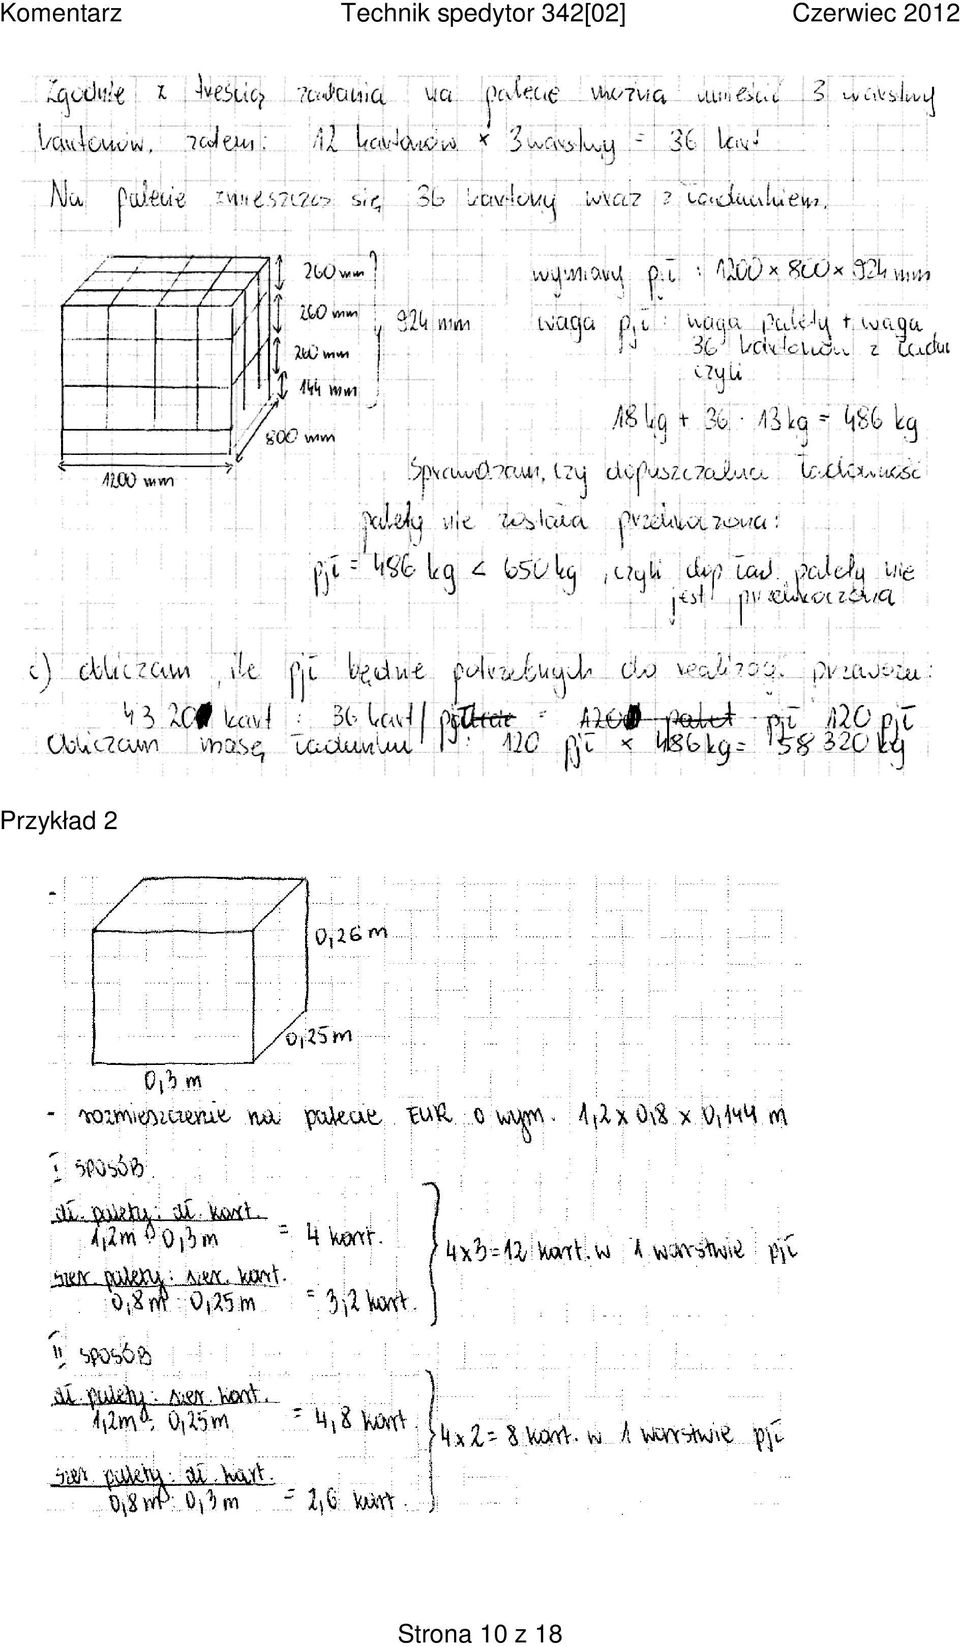 Komentarz Technik spedytor 342[02] Czerwiec 2012
Zgodnie z treścią zadania na palecie można umieścić 3 warstwy
kartonów, zatem: 12 kartonów x 3 warstwy = 36 kart
Na palecie zmieszczą się 36 kartony wraz z ładunkiem.
260 mm
260 mm
260 mm
144 mm
924 mm
800 mm
1200 mm
wymiary pjł : 1200 x 800 x 924 mm
waga pjł : waga palety + waga
36 kartonów z ładun
czyli
18 kg + 36 · 13 kg = 486 kg
Sprawdzam, czy dopuszczalna ładowność
palety nie została przekroczona:
pjł = 486 kg < 650 kg , czyli dop ład. palety nie
jest przekroczona
c) obliczam , ile pjł będzie potrzebnych do realizacji przewozu:
43 200 kart : 36 kart / pjł = 120 pjł
Obliczam masę ładunku : 120 pjł x 486 kg = 58 320 kg
Przykład 2
0,26 m
0,25 m
0,3 m
- rozmieszczenie na palecie EUR o wym. 1,2 x 0,8 x 0,144 m
I SPOSÓB
dł. palety : dł. kart.
1,2m : 0,3m = 4 kart.
4x3=12 kart. w 1 warstwie pjł
szer. palety : szer. kart.
0,8 m : 0,25 m = 3,2 kart.
II SPOSÓB
dł. palety : szer. kart.
1,2m : 0,25m = 4,8 kart.
4x2= 8 kart. w 1 warstwie pjł
szer. palety : dł. kart.
0,8 m : 0,3 m = 2,6 kart.
Strona 10 z 18